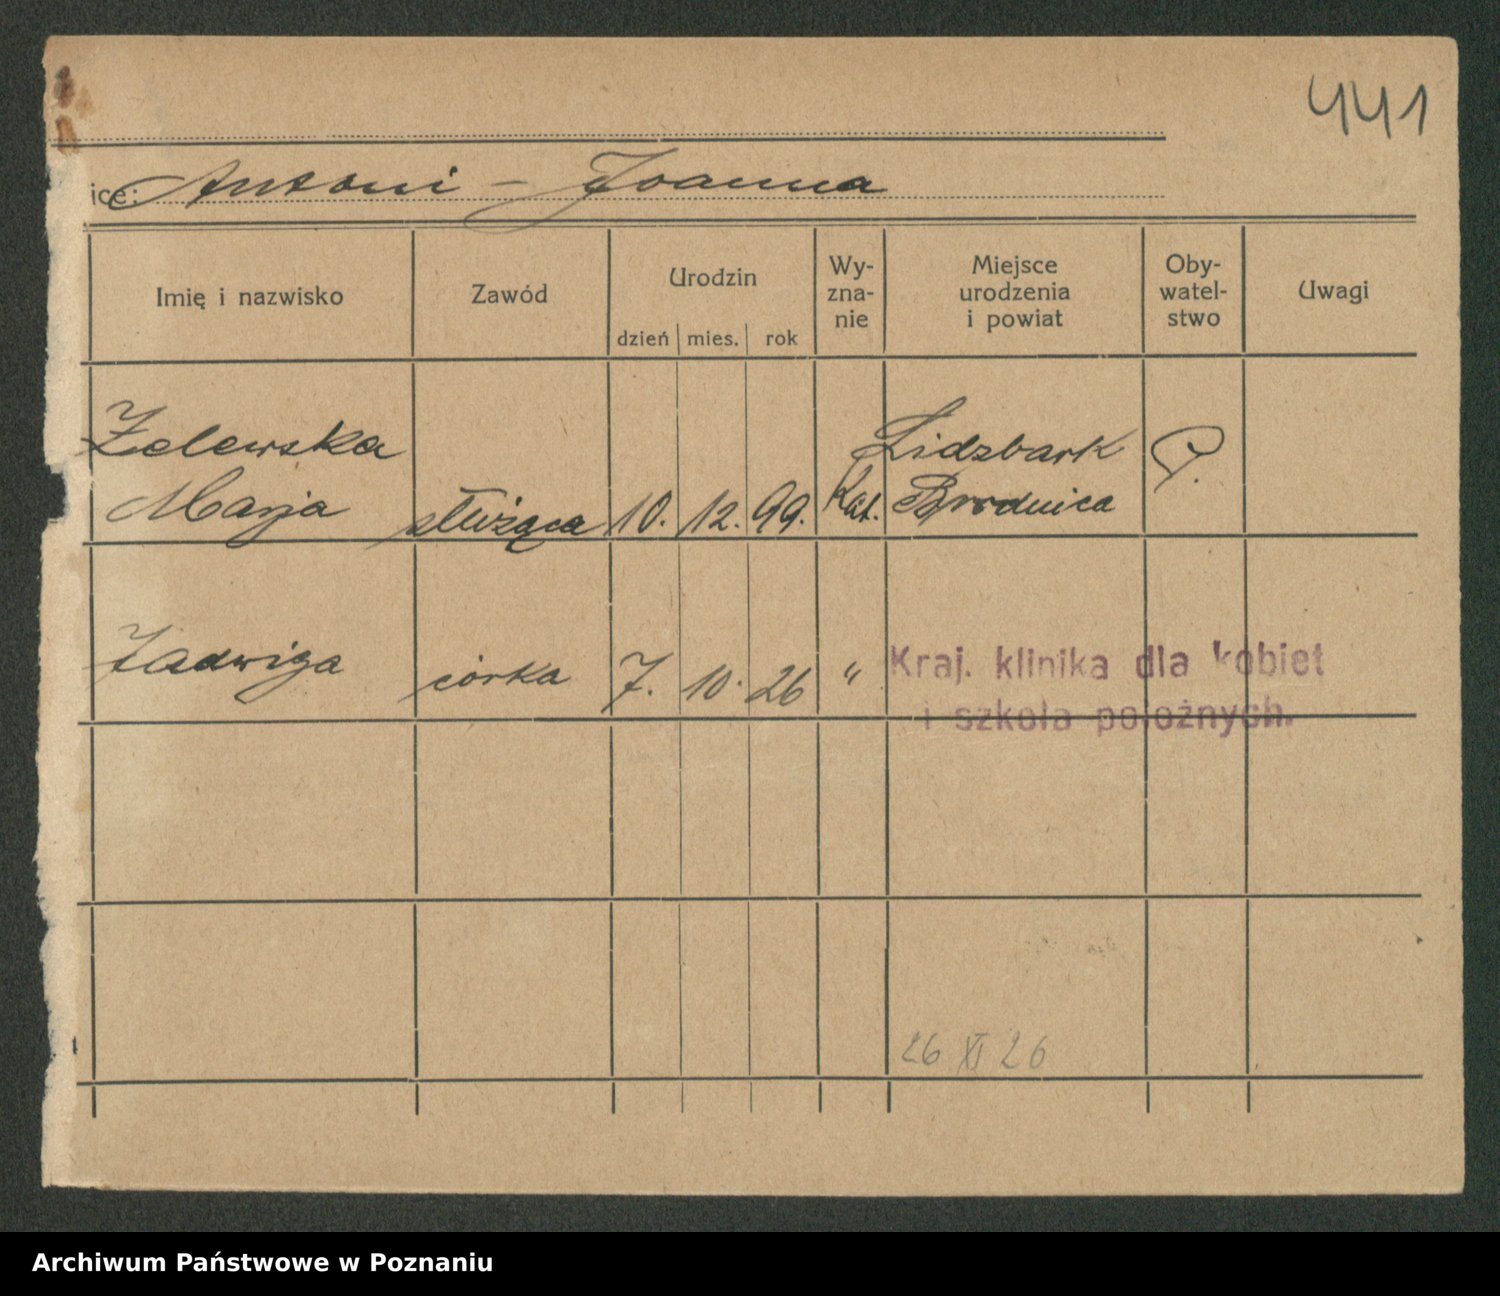 441
ice: Antoni - Joanna
Imię i nazwisko Zawód Urodzin Wy-zna-nie Miejsce urodzenia i powiat Oby-watel-stwo Uwagi
dzień mies. rok
Żelewska Lidzbark P.
Marja służąca 10. 12. 99. Kat. Brodnica
Jadwiga córka 7. 10. 26 "
Kraj. klinika dla kobiet
i szkoła położnych.
26 XI 26
Archiwum Państwowe w Poznaniu